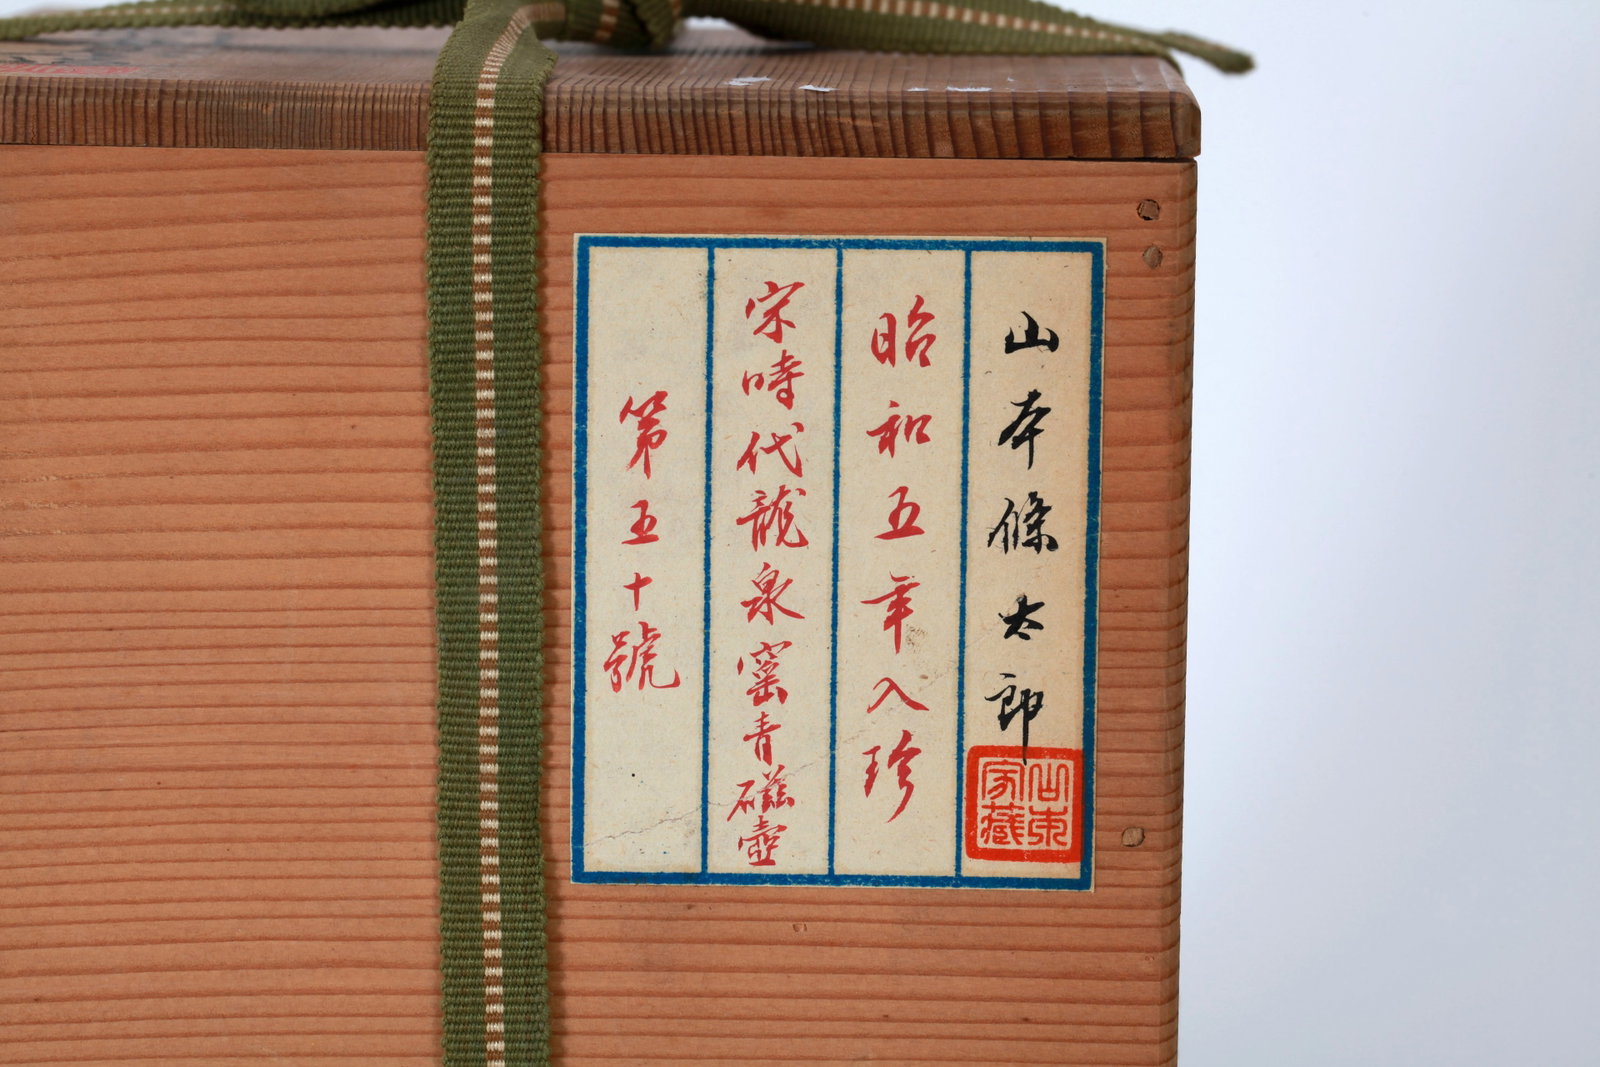 山本條太郎
山本家藏
昭和五年入珍
宋時代龍泉窯青磁壺
第五十號